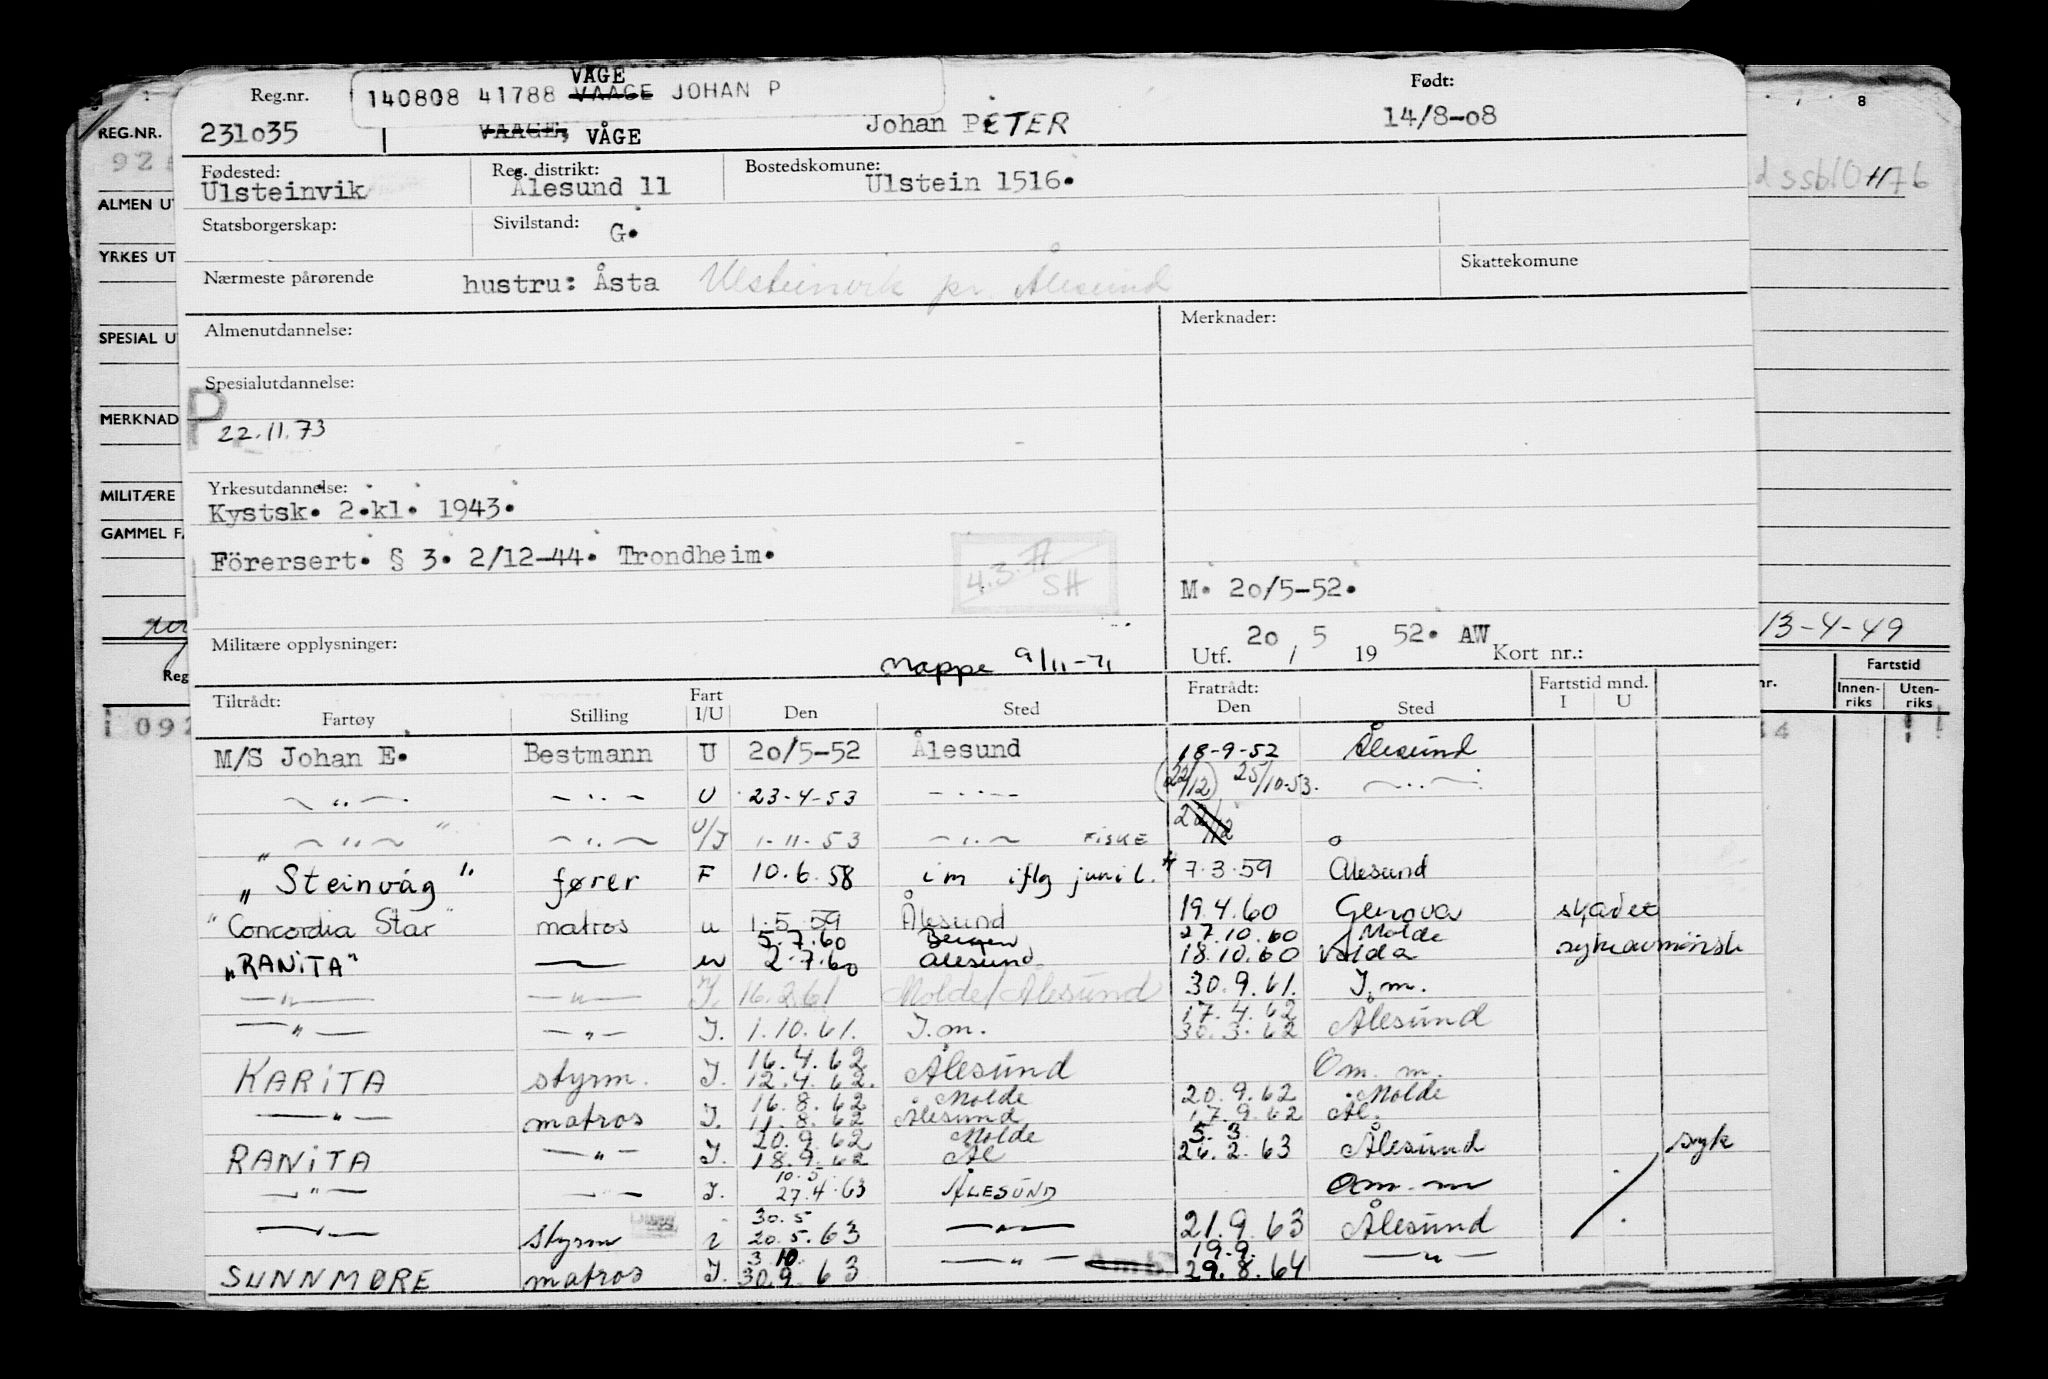 VÅGE
Reg.nr. 140808 41788 VAAGE JOHAN P Født:
231035 VAAGE, VÅGE Johan PETER 14/8-08
Fødested: Reg. distrikt: Bostedskomune:
Ulsteinvik Ålesund 11 Ulstein 1516.
Statsborgerskap: Sivilstand: G. Skattekomune
Nærmeste pårørende hustru: Åsta Ulsteinvik pr Ålesund
Almenutdannelse: Merknader:
Spesialutdannelse:
P
22.11.73
Yrkesutdannelse:
Kystsk. 2.kl. 1943.
Förersert. § 3. 2/12-44. Trondheim.
4.3. SH
M. 20/5-52.
Militære opplysninger: Mappe 9/11-71 Utf. 20 / 5 19 52. AW Kort nr.:
Tiltrådt: Fart Fratrådt: Fartstid mnd.
Fartøy Stilling I/U Den Sted Den Sted I U
M/S Johan E. Bestmann U 20/5-52 Ålesund 18-9-52 Ålesund
— " — — " — U 23-4-53 — " — (22/12) 25/10-53. — " —
— " — — " — U/I 1-11-53 — " — FISKE 22/12 o
"Steinvåg" fører F 10.6.58 im iflg junil. 7.3.59 Ålesund
"Concordia Star" matros u 1.5.59 Ålesund 19.4.60 Genova skadet
5.7.60 Bergen 27.10.60 Molde
"RANITA" — 2.7.60 Ålesund 18.10.60 Volda sykeavmønstr
— " — — " — I. 16.2.61 Molde/Ålesund 30.9.61. I.m.
17.4.62
— " — — " — I. 1.10.61. I.m. 30.3.62 Ålesund
16.4.62
KARITA styrm. I. 12.4.62. Ålesund Om. m.
16.8.62 Molde 20.9.62 Molde
— " — matros I. 11.8.62 Ålesund 17.9.62 Ål.
20.9.62 Molde 5.3.
RANITA — " — I. 18.9.62 Ål 26.2.63 Ålesund syk
10.5
— " — — " — I. 27.4.63 ÅLESUND Om. m
30.5
— " — styrm i 20.5.63 — " — 21.9.63 Ålesund
3.10 19.9.
SUNNMØRE matros I. 30.9.63 — " — 29.8.64 — " —
REG.NR.
ALMEN UT
YRKES UT
SPESIAL U
MERKNAD
MILITÆRE
GAMMEL F
Reg
092
8
13-4-49
nr.
Fartstid
Innen-riks
Uten-riks